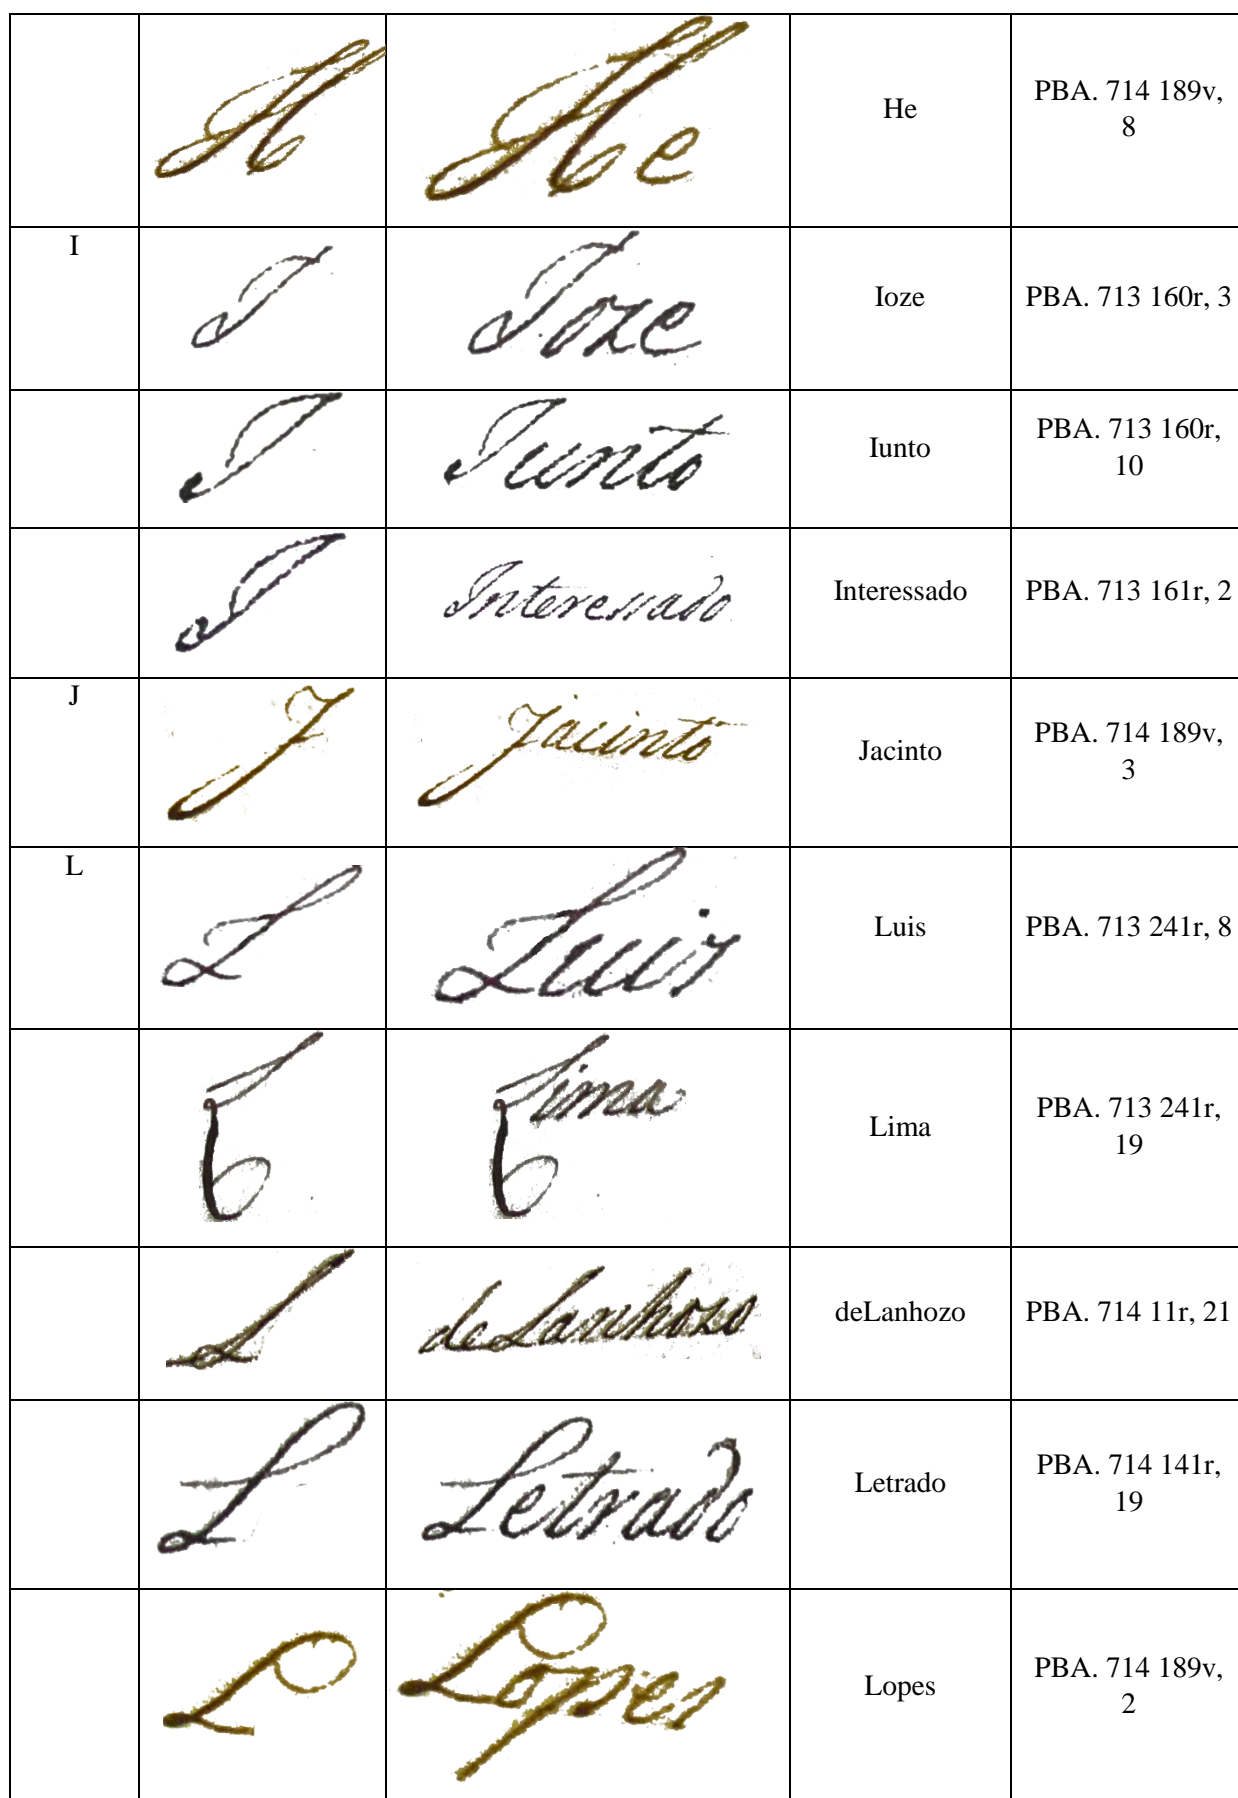 H He He PBA. 714 189v,
8
I I Ioze Ioze PBA. 713 160r, 3
I Iunto Iunto PBA. 713 160r,
10
I Interessado Interessado PBA. 713 161r, 2
J J Jacinto Jacinto PBA. 714 189v,
3
L L Luis Luis PBA. 713 241r, 8
L Lima Lima PBA. 713 241r,
19
L deLanhozo deLanhozo PBA. 714 11r, 21
L Letrado Letrado PBA. 714 141r,
19
L Lopes Lopes PBA. 714 189v,
2